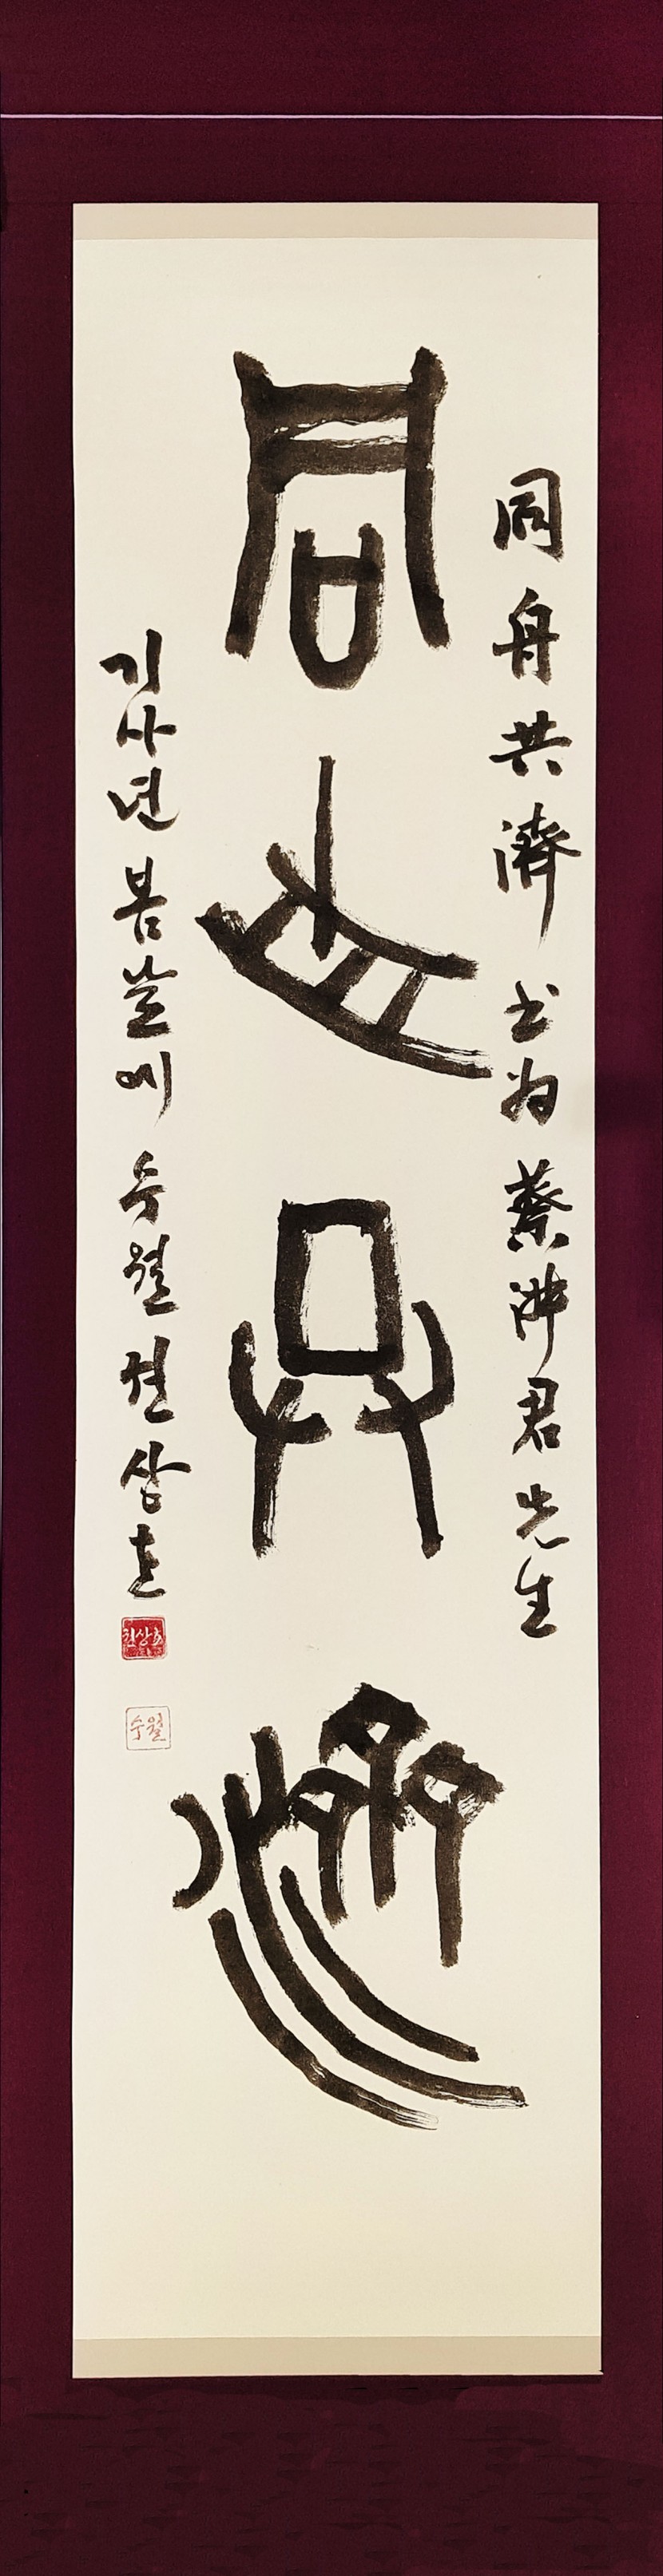 同舟共濟
同舟共濟 书为 蔡冲君先生
기사년 봄날에 수월 천상호
천상호
수월